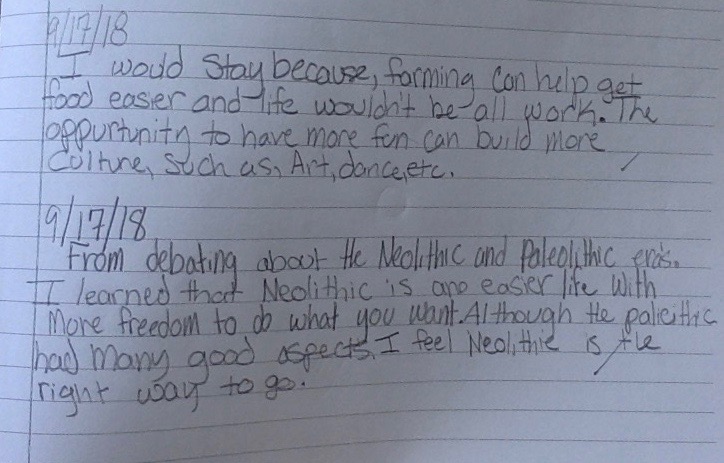 9/17/18
I would stay because, farming can help get
food easier and life wouldn't be all work. The
oppurtunity to have more fun can build more
culture, such as, Art, dance, etc.
9/17/18
From debating about the Neolithic and Paleolithic era's.
I learned that Neolithic is an easier life with
more freedom to do what you want. Although the paliethic
had many good aspects, I feel Neolithic is the
right way to go.